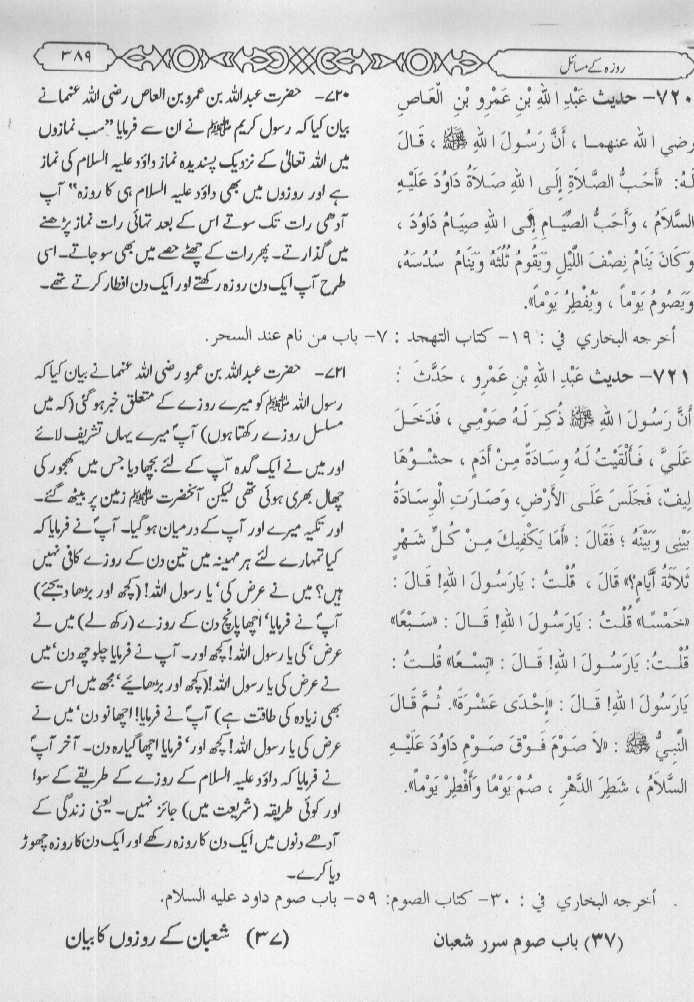 روزہ کے مسائل
۳۸۹
۷۲۰- حديث عَبْدِ اللهِ بْنِ عَمْرِو بْنِ الْعَاصِ
رضي الله عنهما ، أَنَّ رَسُولَ اللهِ ﷺ ، قَالَ
لَهُ: «أَحَبُّ الصَّلَاةِ إِلَى اللهِ صَلَاةُ دَاوُدَ عَلَيْهِ
السَّلَامُ ، وَأَحَبُّ الصِّيَامِ إِلَى اللهِ صِيَامُ دَاوُدَ ،
وَكَانَ يَنَامُ نِصْفَ اللَّيْلِ وَيَقُومُ ثُلُثَهُ وَيَنَامُ سُدُسَهُ،
وَيَصُومُ يَوْماً ، وَيُفْطِرُ يَوْماً».
۷۲۰- حضرت عبداللہ بن عمرو بن العاص رضی اللہ عنہما نے
بیان کیا کہ رسول کریم ﷺ نے ان سے فرمایا ”سب نمازوں
میں اللہ تعالیٰ کے نزدیک پسندیدہ نماز داؤد علیہ السلام کی نماز
ہے اور روزوں میں بھی داؤد علیہ السلام ہی کا روزہ“ آپ
آدھی رات تک سوتے اس کے بعد تہائی رات نماز پڑھنے
میں گذارتے۔ پھر رات کے چھٹے حصے میں بھی سو جاتے۔ اسی
طرح آپ ایک دن روزہ رکھتے اور ایک دن افطار کرتے تھے۔
أخرجه البخاري في : ۱۹- كتاب التهجد : ۷- باب من نام عند السحر.
۷۲۱- حديث عَبْدِ اللهِ بْنِ عَمْرٍو ، حَدَّثَ :
أَنَّ رَسُولَ اللهِ ﷺ ذُكِرَ لَهُ صَوْمِي ، فَدَخَلَ
عَلَيَّ ، فَأَلْقَيْتُ لَهُ وِسَادَةً مِنْ أَدَمٍ ، حَشْوُهَا
لِيفٌ، فَجَلَسَ عَلَى الْأَرْضِ، وَصَارَتِ الْوِسَادَةُ
بَيْنِي وَبَيْنَهُ ؛ فَقَالَ : «أَمَا يَكْفِيكَ مِنْ كُلِّ شَهْرٍ
ثَلَاثَةُ أَيَّامٍ؟» قَالَ ، قُلْتُ : يَارَسُولَ اللهِ! قَالَ :
«خَمْسًا» قُلْتُ : يَارَسُولَ اللهِ! قَالَ : «سَبْعًا»
قُلْتُ: يَارَسُولَ اللهِ! قَالَ : «تِسْعًا» قُلْتُ :
يَارَسُولَ اللهِ! قَالَ : «إِحْدَى عَشْرَةَ». ثُمَّ قَالَ
النَّبِيُّ ﷺ : «لَا صَوْمَ فَوْقَ صَوْمِ دَاوُدَ عَلَيْهِ
السَّلَامُ ، شَطْرَ الدَّهْرِ ، صُمْ يَوْمًا وَأَفْطِرْ يَوْماً».
۷۲۱- حضرت عبداللہ بن عمرو رضی اللہ عنہما نے بیان کیا کہ
رسول اللہ ﷺ کو میرے روزے کے متعلق خبر ہو گئی (کہ میں
مسلسل روزے رکھتا ہوں) آپؐ میرے یہاں تشریف لائے
اور میں نے ایک گدہ آپ کے لئے بچھا دیا جس میں کھجور کی
چھال بھری ہوئی تھی لیکن آنحضرت ﷺ زمین پر بیٹھ گئے۔
اور تکیہ میرے اور آپ کے درمیان ہو گیا۔ آپؐ نے فرمایا کہ
کیا تمہارے لئے ہر مہینہ میں تین دن کے روزے کافی نہیں
ہیں؟ میں نے عرض کی‘ یا رسول اللہ! (کچھ اور بڑھا دیجئے)
آپؐ نے فرمایا‘ اچھا پانچ دن کے روزے (رکھ لے) میں نے
عرض‘ کی یا رسول اللہ! کچھ اور۔ آپ نے فرمایا چلو چھ دن‘ میں
نے عرض کی یا رسول اللہ! (کچھ اور بڑھایئے‘ مجھ میں اس سے
بھی زیادہ کی طاقت ہے) آپؐ نے فرمایا! اچھا نو دن‘ میں نے
عرض کی یا رسول اللہ! کچھ اور‘ فرمایا اچھا گیارہ دن۔ آخر آپؐ
نے فرمایا کہ داؤد علیہ السلام کے روزے کے طریقے کے سوا
اور کوئی طریقہ (شریعت میں) جائز نہیں۔ یعنی زندگی کے
آدھے دنوں میں ایک دن کا روزہ رکھے اور ایک دن کا روزہ چھوڑ
دیا کرے۔
أخرجه البخاري في : ۳۰- كتاب الصوم: ۵۹- باب صوم داود عليه السلام.
(۳۷) باب صوم سرر شعبان
(۳۷) شعبان کے روزوں کا بیان